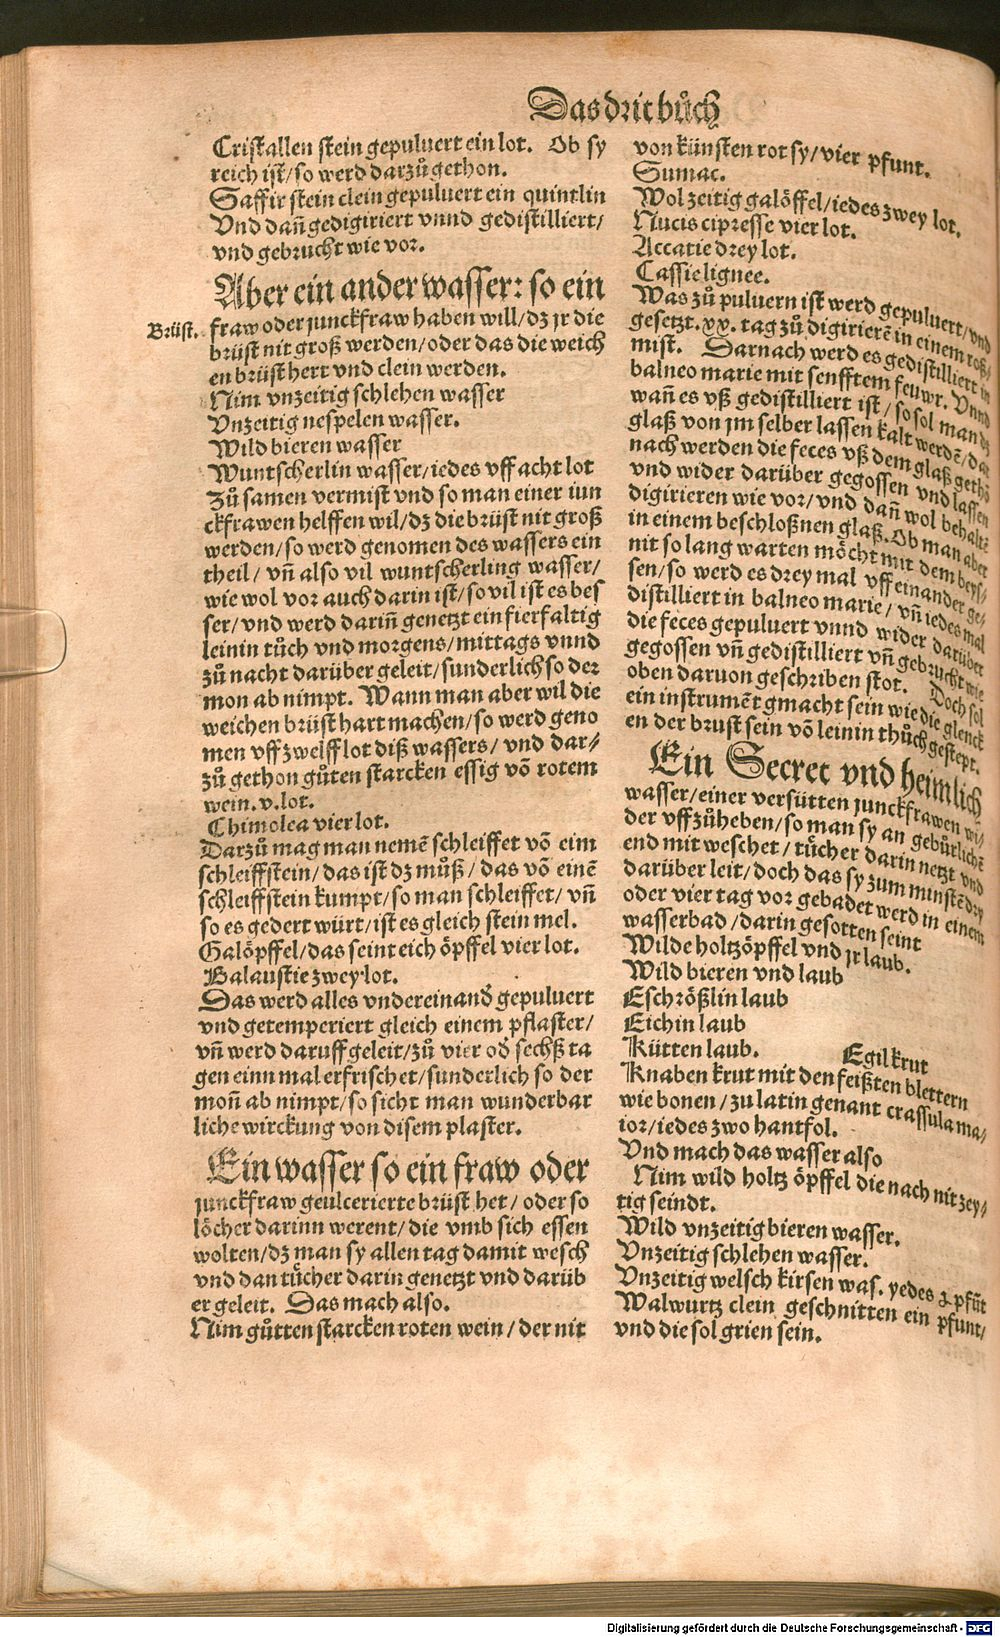 Das drit bůch
Cristallen stein gepuluert ein lot. Ob sy
reich ist/so werd darzů gethon.
Saffir stein clein gepuluert ein quintlin
Vnd dañ gedigiriert vnnd gedistilliert/
vnd gebrucht wie vor.
Aber ein ander wasser: so ein
Brüst.
fraw oder junckfraw haben will/dz jr die
brüst nit groß werden/oder das die weich
en brüst hert vnd clein werden.
Nim vnzeitig schlehen wasser
Vnzeitig nespelen wasser.
Wild bieren wasser
Wuntscherlin wasser/iedes vff acht lot
Zů samen vermist vnd so man einer iun
ckfrawen helffen wil/dz die brüst nit groß
werden/so werd genomen des wassers ein
theil/ vñ also vil wuntscherling wasser/
wie wol vor auch darin ist/so vil ist es bes
ser/vnd werd dariñ genetzt ein fierfaltig
leinin tůch vnd morgens/mittags vnnd
zů nacht darüber geleit/sunderlich so der
mon ab nimpt. Wann man aber wil die
weichen brüst hart machen/so werd geno
men vff zwelff lot diß wassers/ vnd dar⸗
zů gethon gůten starcken essig võ rotem
wein.v.lot.
Chimolea vier lot.
Darzů mag man nemẽ schleiffet võ eim
schleiffstein/das ist dz můß/das võ einẽ
schleiffstein kumpt/so man schleiffet/vñ
so es gedert würt/ist es gleich stein mel.
Galöpffel/das seint eich öpffel vier lot.
Balaustie zwey lot.
Das werd alles vndereinand̕ gepuluert
vnd getemperiert gleich einem pflaster/
vñ werd daruff geleit/zů vier od̕ sechß ta
gen einn mal erfrischet/sunderlich so der
moñ ab nimpt/so sicht man wunderbar
liche wirckung von disem plaster.
Ein wasser so ein fraw oder
junckfraw geulcerierte brüst het/ oder so
löcher darinn werent/die vmb sich essen
wolten/dz man sy allen tag damit wesch
vnd dan tücher darin genetzt vnd darüb
er geleit. Das mach also.
Nim gůtten starcken roten wein/der nit
von künsten rot sy/vier pfunt.
Sumac.
Wol zeitig galöffel/iedes zwey lot.
Nucis cipresse vier lot.
Accatie drey lot.
Cassie lignee.
Was zů puluern ist werd gepuluert/vnd
gesetzt.xx. tag zů digirierẽ in einem roß⸗
mist. Darnach werd es gedistilliert in
balneo marie mit senfftem feuwr. Vnnd
wañ es vß gedistilliert ist/so sol man dz
glaß von jm selber lassen kalt werdẽ/dar
nach werden die feces vß dem glaß gethõ
vnd wider darüber gegossen vnd lassen
digirieren wie vor/vnd dañ wol behaltẽ
in einem beschloßnen glaß. Ob man aber
nit so lang warten möcht mit dem beys⸗
sen/so werd es drey mal vff einander ge⸗
distilliert in balneo marie/vñ iedes mal
die feces gepuluert vnnd wider darüber
gegossen vñ gedistilliert vñ gebrucht wie
oben daruon geschriben stot. Doch sol
ein instrumẽt gmacht sein wie die glenck
en der brust sein võ leinin thůch gestept.
Ein Secret vnd heimlich
wasser/einer versütten junckfrawen wi⸗
der vff zůheben/so man sy an gebürlichẽ
end mit weschet/ tücher darin netzt vnd
darüber leit/doch das sy zum minstẽ dry
oder vier tag vor gebadet werd in einem
wasserbad/darin gesotten seint
Wilde holtzöpffel vnd jr laub.
Wild bieren vnd laub
Eschrößlin laub
Eichin laub
Kütten laub. Egilkrut
Knaben krut mit den feißten blettern
wie bonen/zu latin genant crassula ma⸗
ior/iedes zwo hantfol.
Vnd mach das wasser also
Nim wild holtz öpffel die nach nit zey⸗
tig seindt.
Wild vnzeitig bieren wasser.
Vnzeitig schlehen wasser.
Vnzeitig welsch kirsen was. yedes pfũt
Walwurtz clein geschnitten ein pfunt/
vnd die sol grien sein.
Digitalisierung gefördert durch die Deutsche Forschungsgemeinschaft - DFG